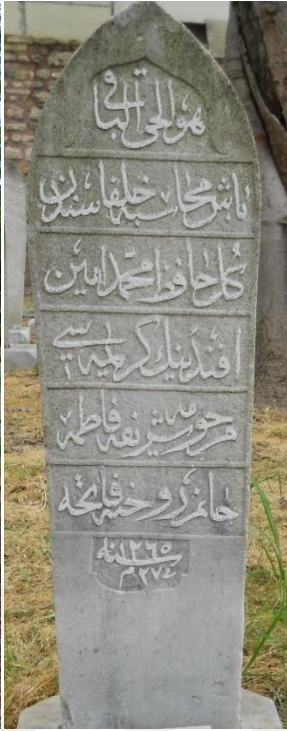 هو الحي الباقي
باش محاسبه خلفاسندن
كلر حافظ محمد امين
افندينك كريمه سي
مرحومه شريفه فاطمه
خانم روحنه فاتحه
سنه ١٢٦٥